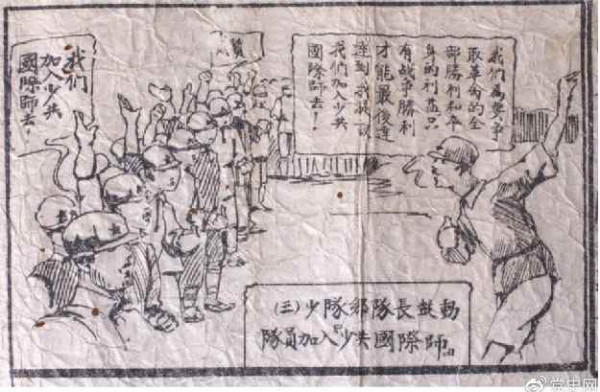 我们為要爭
取革命的全
部勝利和本
身的利益只
有战爭勝利
才能最後達
到我提议
我們加入少共
國際師去！
我们
加入少共
國際師去！
(三)少隊部隊長鼓動
隊員加入『少共國際師』
党史网